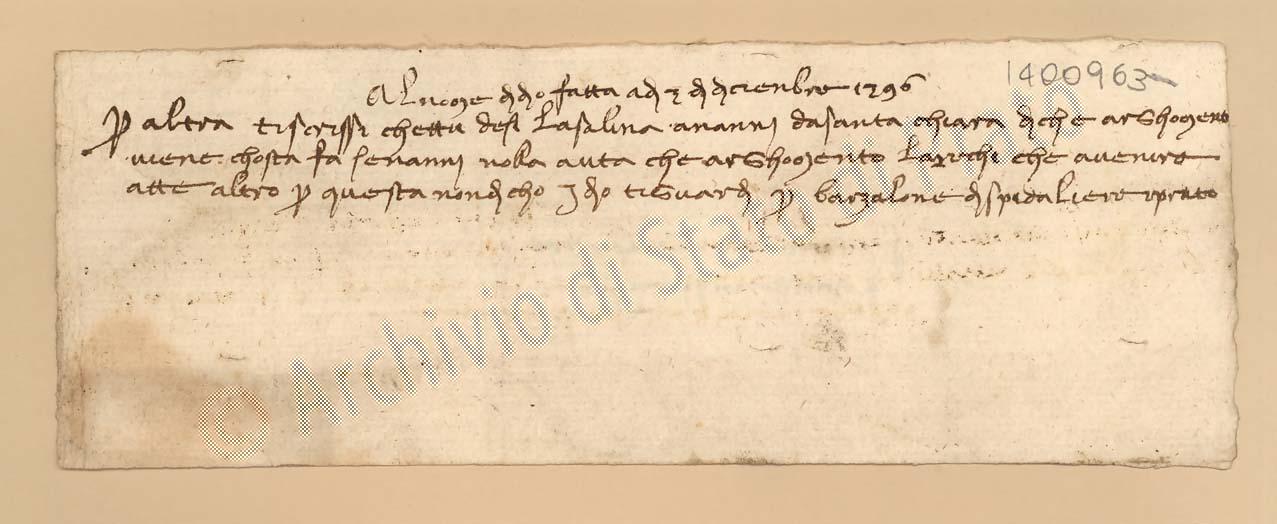 1400963
Al nome di dio fatta a dì 7 di diciembre 1396
P altra tiscrissi chettu desi lasalina ananni dasanta chiara di che arghomento
viene chosta fa senanni nolla auta che arghomento larechi che avenire
atte altro p questa nondicho Idio tiguardi p barzalone dispidaliere i prato
© Archivio di Stato di Prato